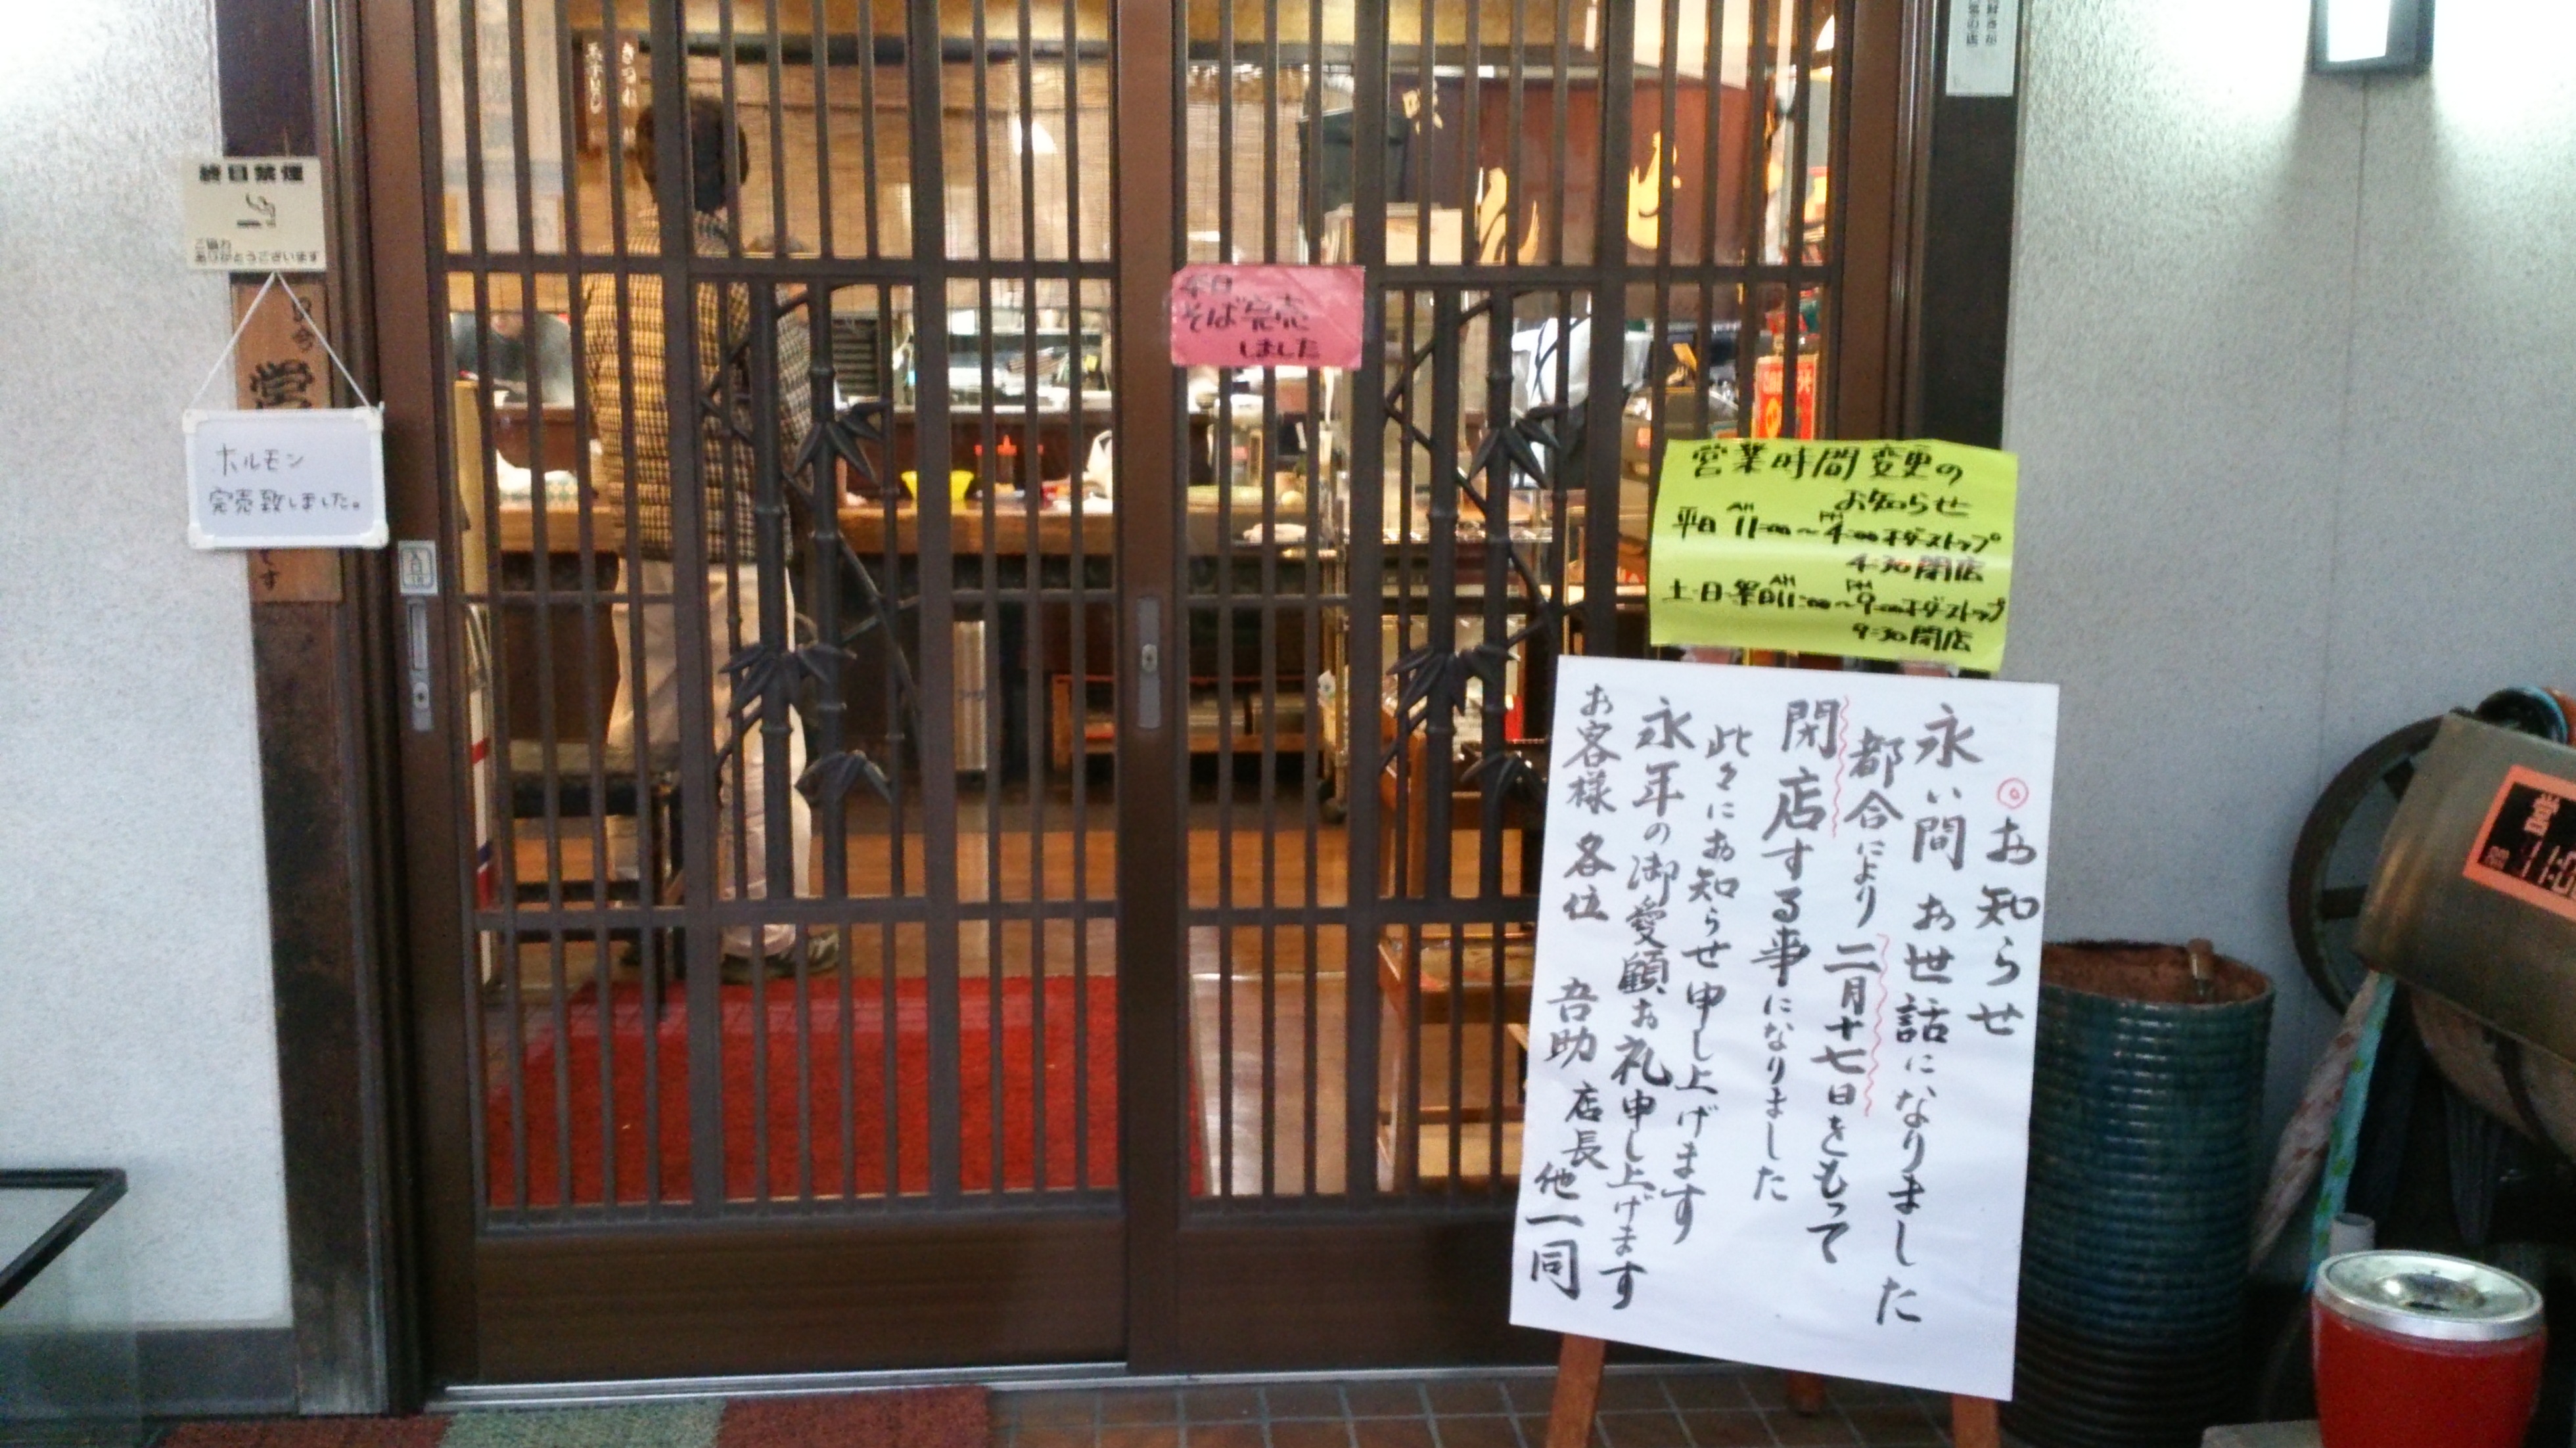 終日禁煙
ご協力
ありがとうございます
ホルモン
完売致しました。
本日
そば完売
しました
営業時間変更の
お知らせ
平日 AM 11:00〜PM 4:00 オーダーストップ
4:30 閉店
土・日・祭日 AM 11:00〜PM 9:00 オーダーストップ
9:30 閉店
◎お知らせ
永い間 お世話になりました
都合により 二月十七日をもって
閉店する事になりました
此々にお知らせ申し上げます
永年の御愛顧お礼申し上げます
お客様各位
吾助 店長 他一同